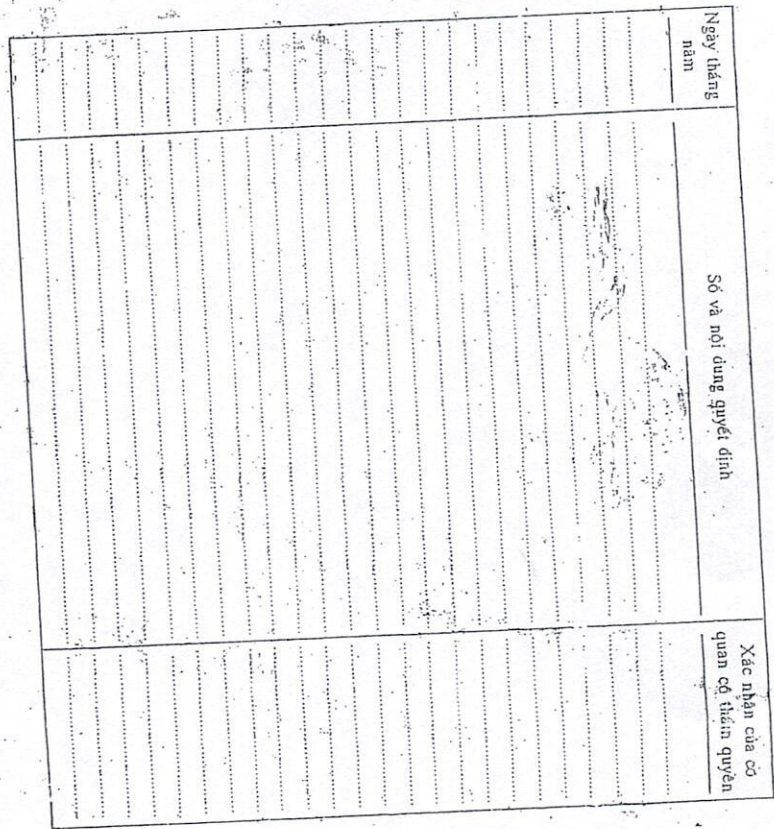 Ngày tháng
năm
Số và nội dung quyết định
Xác nhận của cơ
quan có thẩm quyền